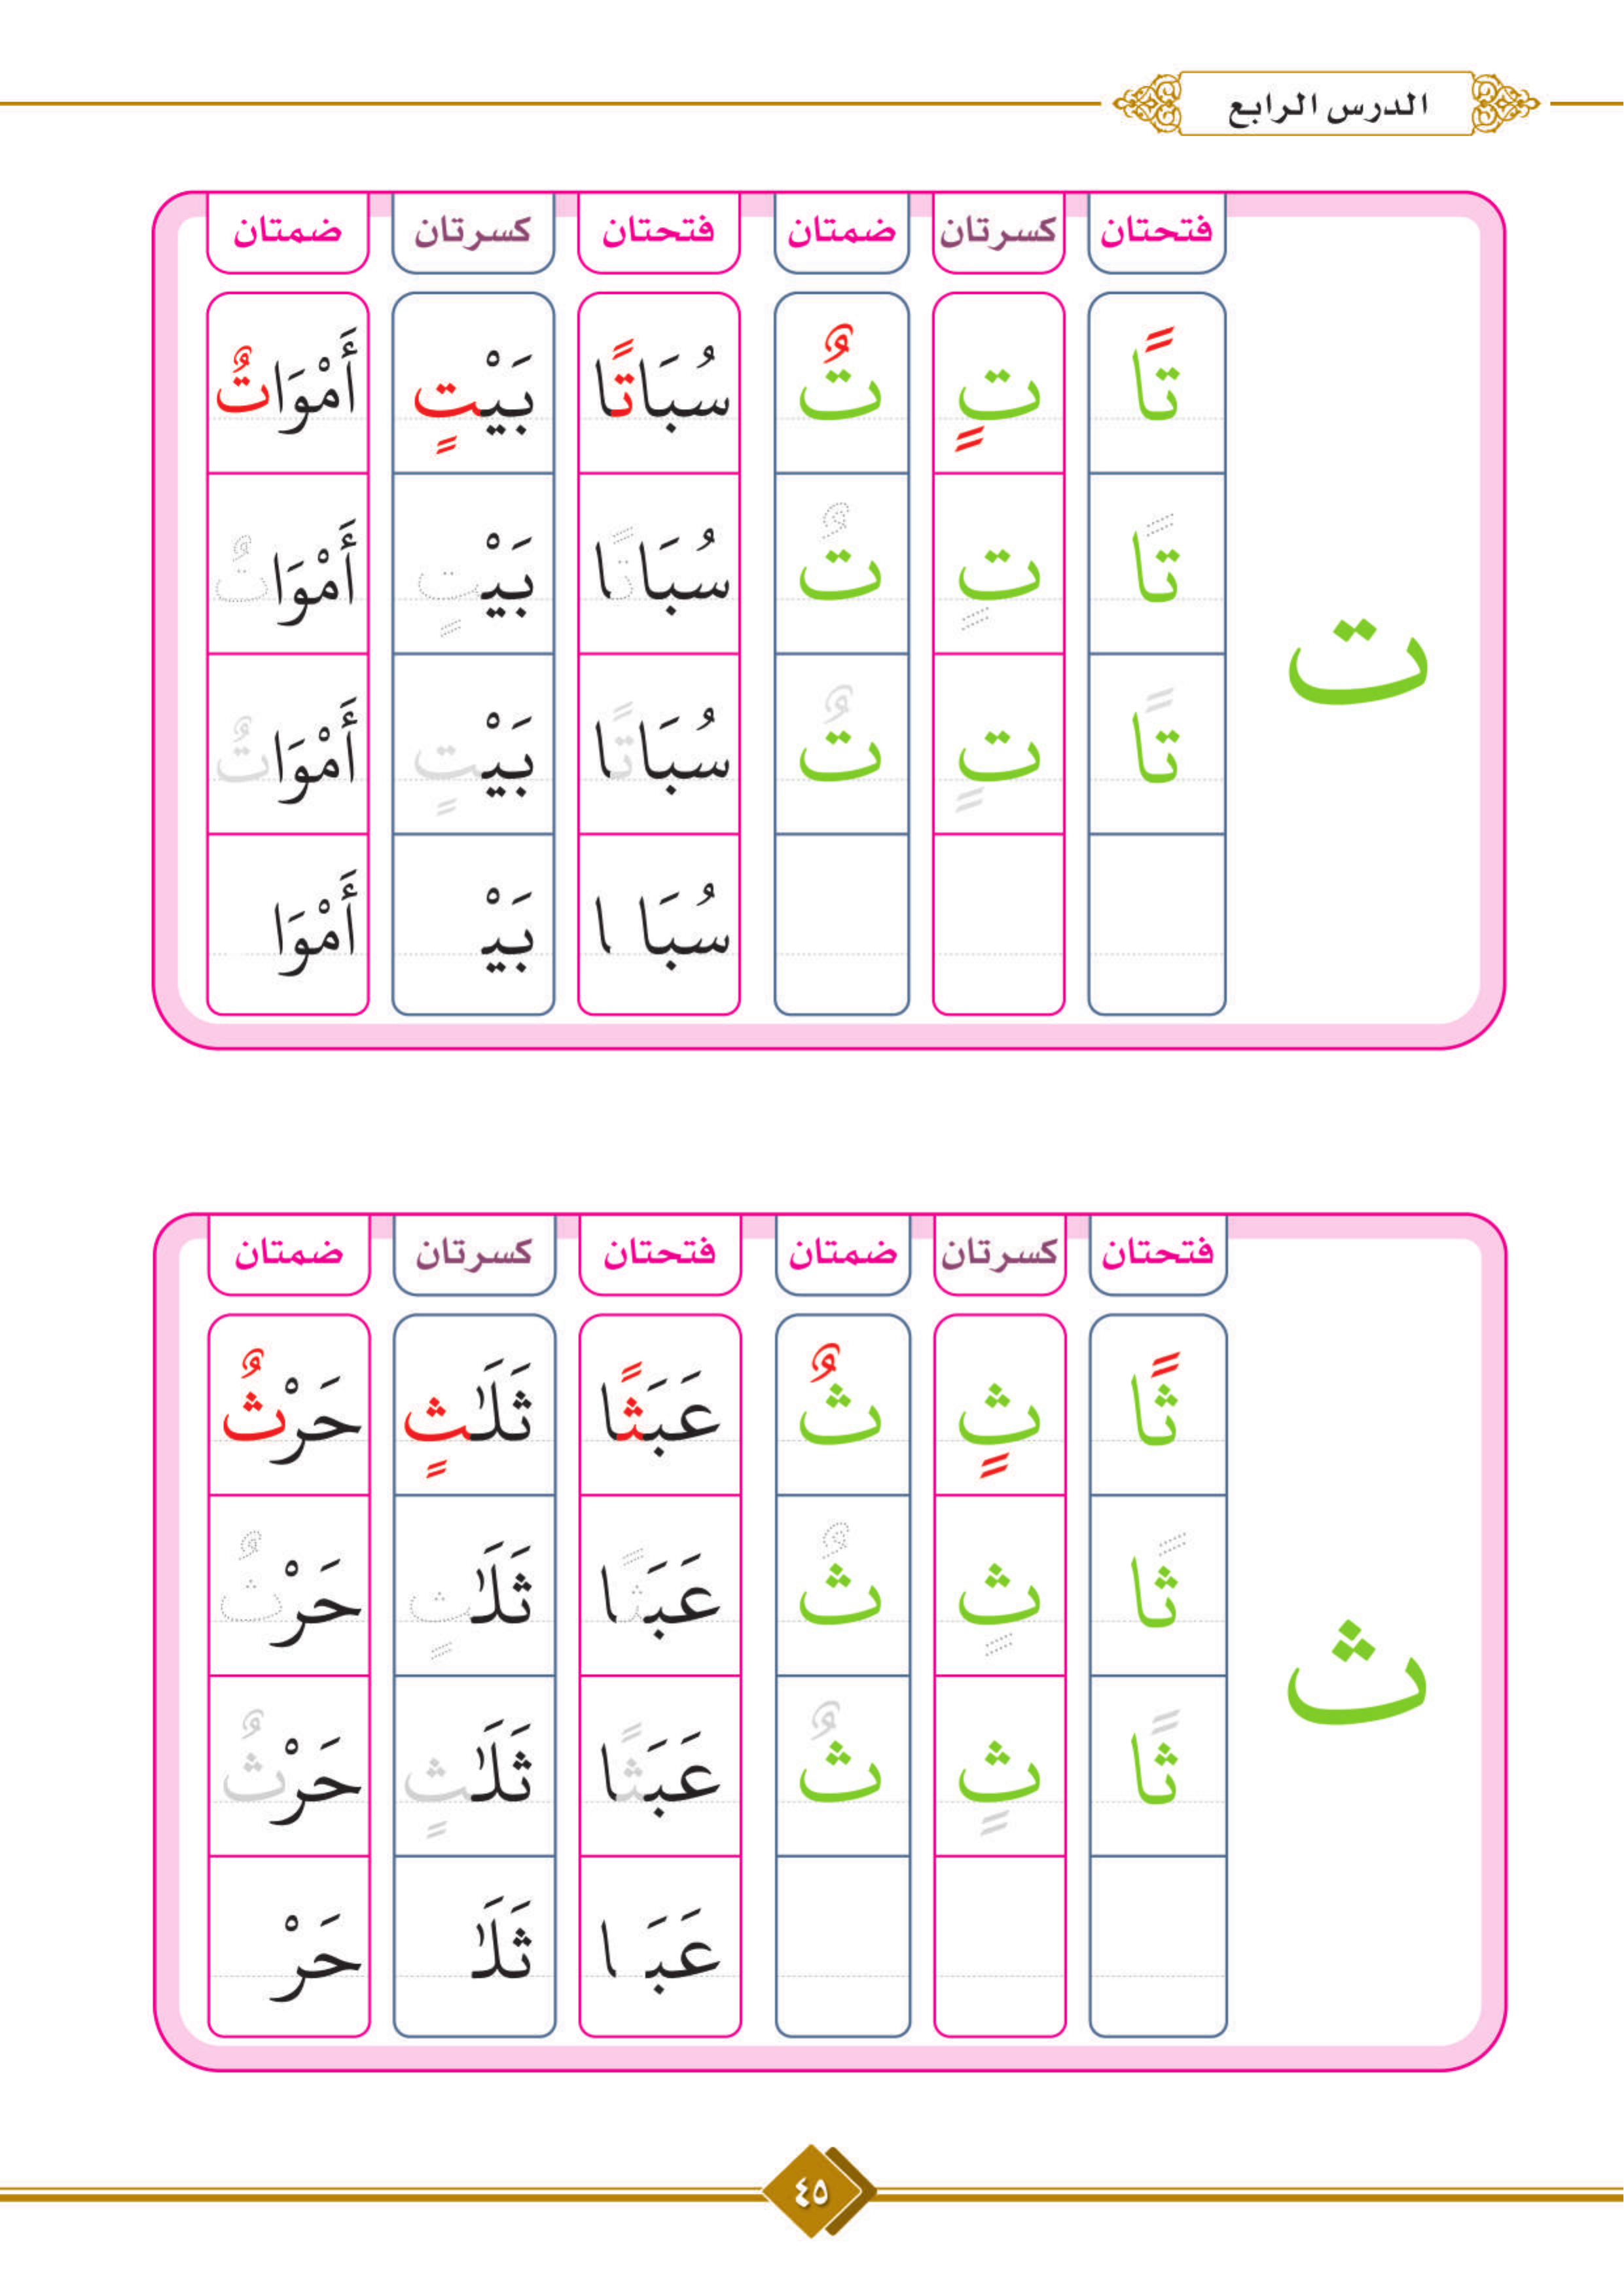 الدرس الرابع
فتحتان كسرتان ضمتان فتحتان كسرتان ضمتان
تًا تٍ تٌ سُبَاتًا بَيْتٍ أَمْوَاتٌ
تًا تٍ تٌ سُبَاتًا بَيْتٍ أَمْوَاتٌ
ت
تًا تٍ تٌ سُبَاتًا بَيْتٍ أَمْوَاتٌ
سُبَا ا بَيْـ أَمْوَا
فتحتان كسرتان ضمتان فتحتان كسرتان ضمتان
ثًا ثٍ ثٌ عَبَثًا ثَلَـٰثٍ حَرْثٌ
ثًا ثٍ ثٌ عَبَثًا ثَلَـٰثٍ حَرْثٌ
ث
ثًا ثٍ ثٌ عَبَثًا ثَلَـٰثٍ حَرْثٌ
عَبَـ ا ثَلَـٰ حَرْ
٤٥